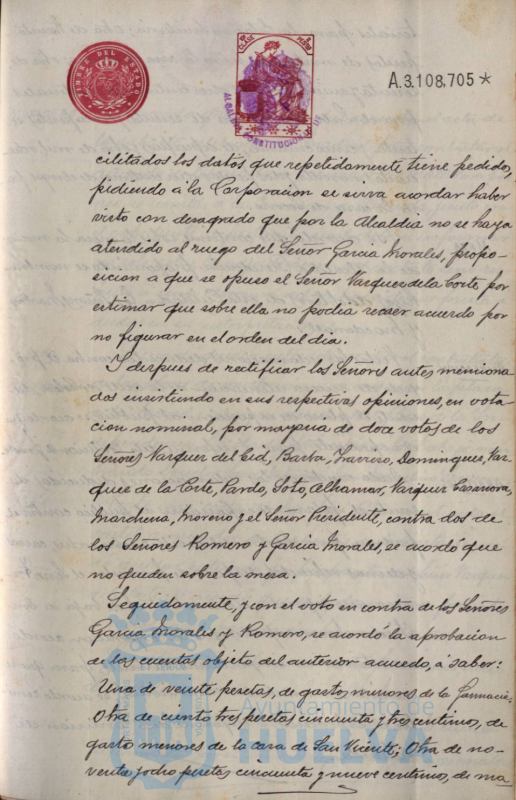 TIMBRE DEL ESTADO
CLASE
ALCALDIA CONSTITUCIONAL
A.3.108,705*
cilitados los datos que repetidamente tiene pedido,
pidiendo á la Corporacion se sirva acordar haber
visto con desagrado que por la Alcaldia no se haya
atendido al ruego del Señor Garcia Morales, propo-
sicion á que se opuso el Señor Vazquez de la Corte, por
estimar que sobre ella no podia recaer acuerdo por
no figurar en el orden del dia.
Y despues de rectificar los Señores antes menciona
dos insistiendo en sus respectivas opiniones, en vota
cion nominal, por mayoria de doce votos de los
Señores Vazquez del Cid, Barba, Dominguez, Vaz-
quez de la Corte, Pardo, Soto, Alhamar, Vazquez Casanova,
Marchena, Moreno y el Señor Presidente, contra dos de
los Señores Romero y Garcia Morales, se acordó que
no queden sobre la mesa.
Seguidamente, y con el voto en contra de los Señores
Garcia Morales y Romero, se acordó la aprobacion
de las cuentas objeto del anterior acuerdo, á saber:
Una de veinte pesetas, de gastos menores de la Farmacia:
Otra de ciento tres pesetas cincuenta y tres centimos, de
gasto menores de la casa de San Vicente; Otra de no-
venta y ocho pesetas cincuenta y nueve centimos, de ma-
Ayuntamiento de
HUELVA